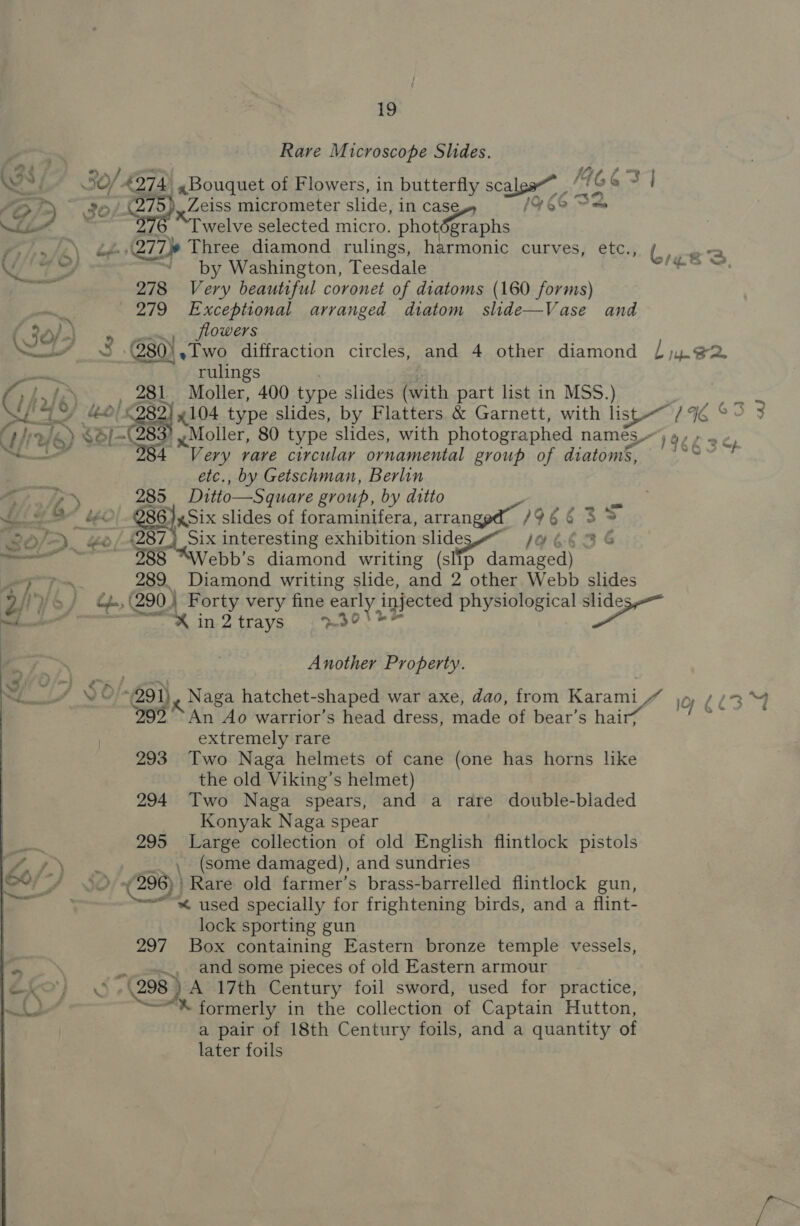 19
Rare Microscope Slides.
30/ 274 Bouquet of Flowers, in butterfly scales 196631
30/ 275 Zeiss micrometer slide, in case 196632
276 Twelve selected micro. photographs
277 Three diamond rulings, harmonic curves, etc.,
by Washington, Teesdale
278 Very beautiful coronet of diatoms (160 forms)
279 Exceptional arranged diatom slide—Vase and
flowers
280 Two diffraction circles, and 4 other diamond
rulings
281 Moller, 400 type slides (with part list in MSS.)
282 104 type slides, by Flatters & Garnett, with list 196633
283 Moller, 80 type slides, with photographed names 196634
284 Very rare circular ornamental group of diatoms,
etc., by Getschman, Berlin
285 Ditto—Square group, by ditto
286 Six slides of foraminifera, arranged 196635
287 Six interesting exhibition slides 196636
288 Webb's diamond writing (slip damaged)
289 Diamond writing slide, and 2 other Webb slides
290 Forty very fine early injected physiological slides
in 2 trays
Another Property.
291 Naga hatchet-shaped war axe, dao, from Karami 196637
292 An Ao warrior's head dress, made of bear's hair,
extremely rare
293 Two Naga helmets of cane (one has horns like
the old Viking's helmet)
294 Two Naga spears, and a rare double-bladed
Konyak Naga spear
295 Large collection of old English flintlock pistols
(some damaged), and sundries
296 Rare old farmer's brass-barrelled flintlock gun,
used specially for frightening birds, and a flint-
lock sporting gun
297 Box containing Eastern bronze temple vessels,
and some pieces of old Eastern armour
298 A 17th Century foil sword, used for practice,
formerly in the collection of Captain Hutton,
a pair of 18th Century foils, and a quantity of
later foils